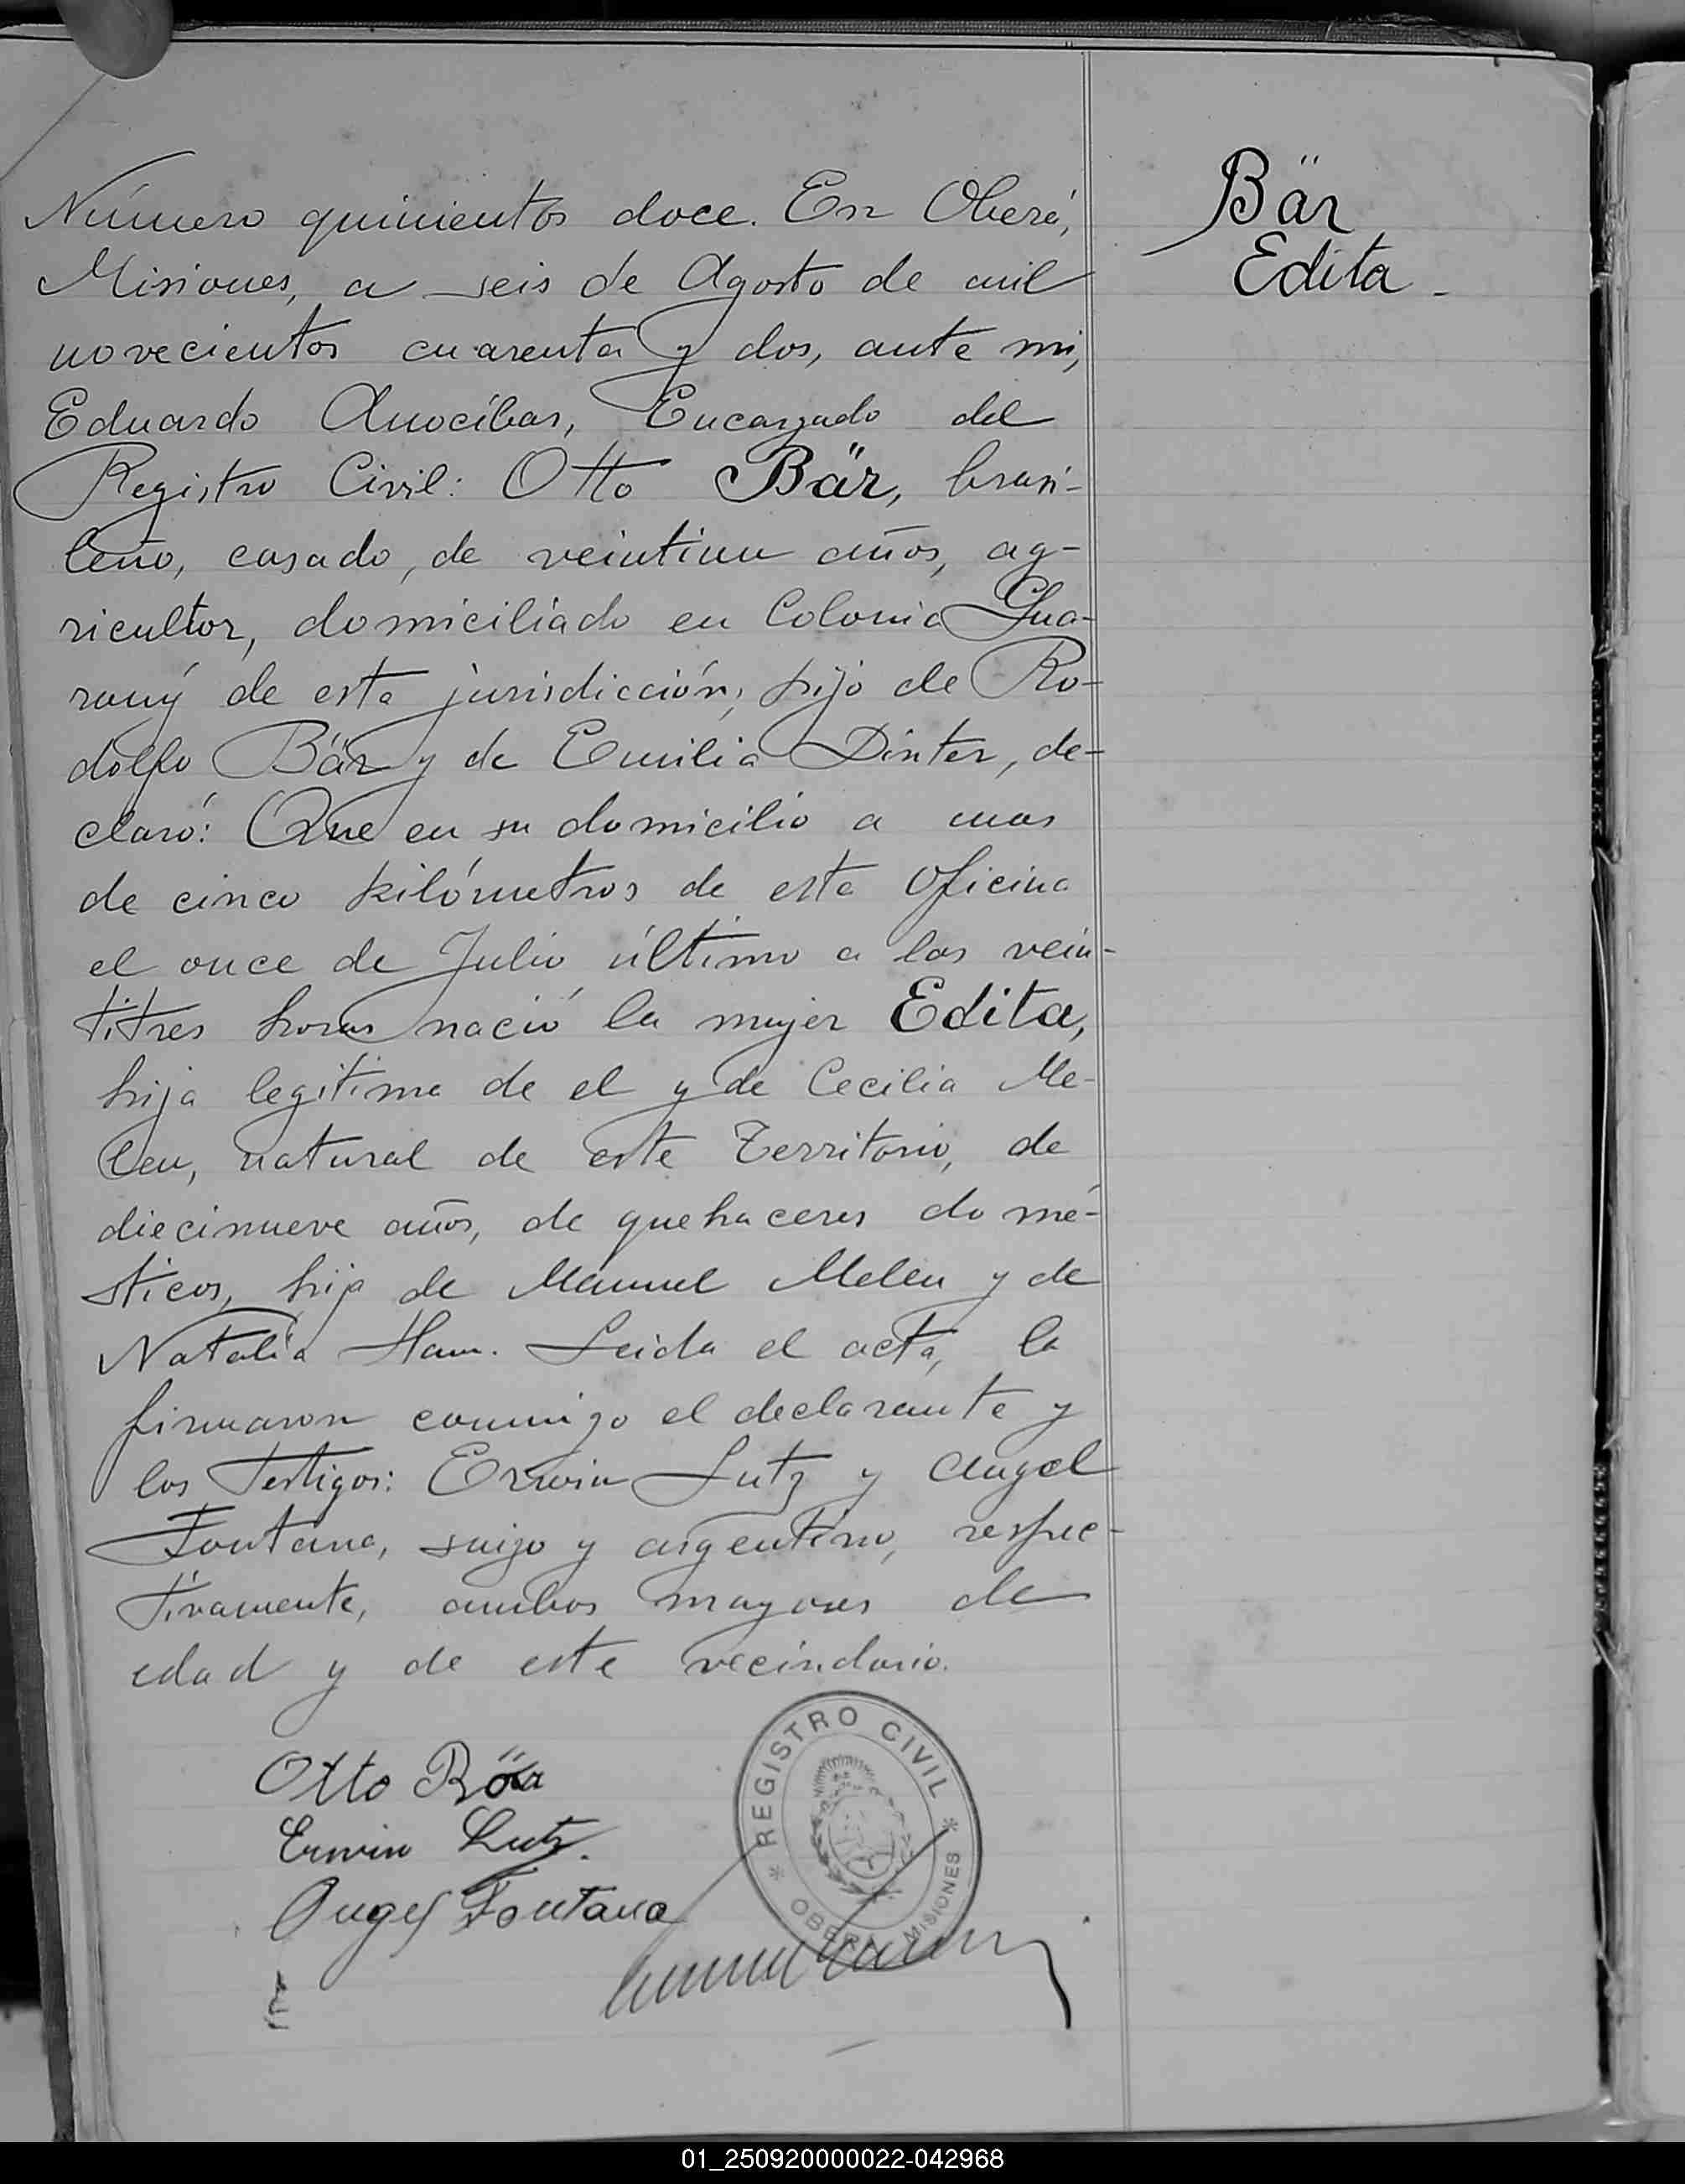 Número quinientos doce. En Oberá,
Misiones, a seis de Agosto de mil
novecientos cuarenta y dos, ante mi,
Eduardo Anocíbar, Encargado del
Registro Civil: Otto Bär, brasi-
leño, casado, de veintiun años, ag-
ricultor, domiciliado en Colonia Gua-
raný de esta jurisdicción, hijo de Ro-
dolfo Bär y de Emilia Dinter, de-
claró: Que en su domicilio a mas
de cinco kilómetros de esta Oficina
el once de Julio último a las vein-
titres horas nació la mujer Edita,
hija legitima de el y de Cecilia Me-
leu, natural de este Territorio, de
diecinueve años, de quehaceres domé-
sticos, hija de Manuel Meleu y de
Natalia Ham. Leida el acta, la
firmaron conmigo el declarante y
los Testigos: Erwin Lutz y Angel
Fontana, suizo y argentino, respec-
tivamente, ambos mayores de
edad y de este vecindario.
Bär
Edita
Otto Bär
Erwin Lutz.
Angel Fontana
REGISTRO CIVIL
OBERA MISIONES
01_250920000022-042968